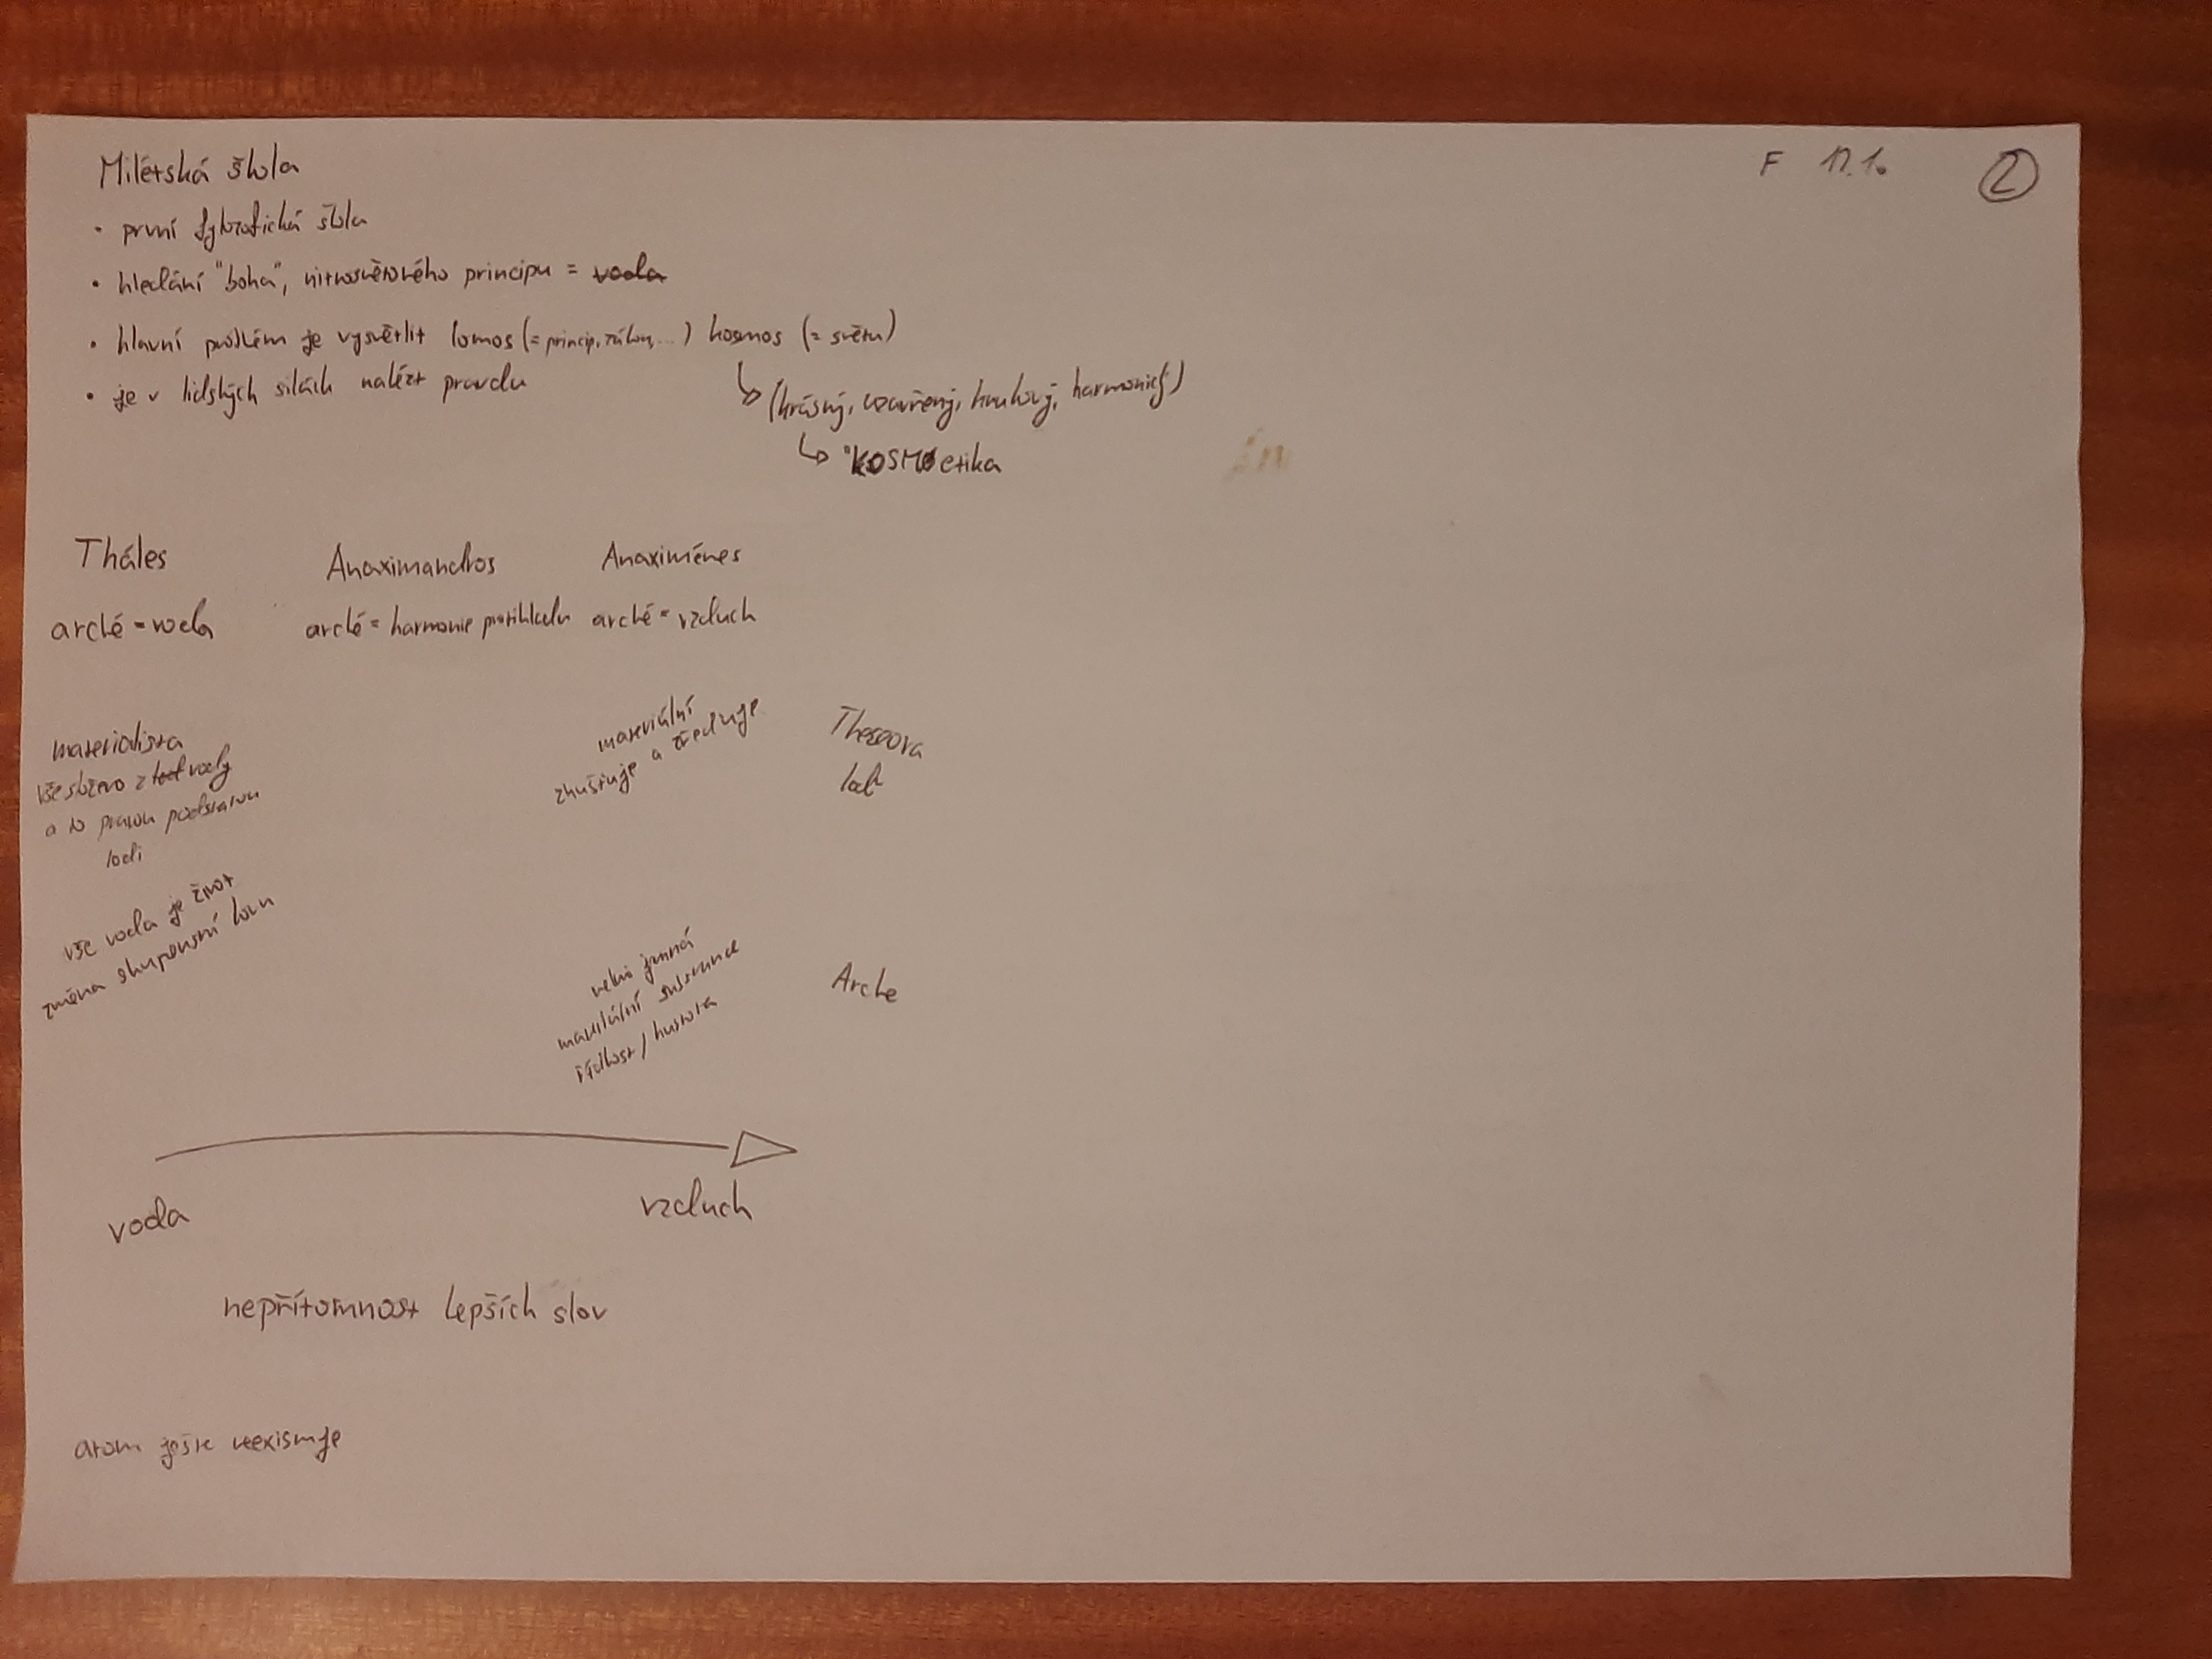 F 17.10 2
Milétská škola
• první fylozofická škola
• hledání "boha", nitrosvětového principu = voda
• hlavní problém je vysvětlit lomos (= princip, zákon, ...) kosmos (= světu)
• je v lidských silách nalézt pravdu
(krásný, uzavřený, kruhový, harmonický)
"KOSMOetika
Tháles Anaximandros Anaximénes
arché = voda arché = harmonie protikladu arché = vzduch
materialista
vše složeno z vody
a to pravou podstatou
lodi
materiální
zhušťuje a zřeďuje
Theseova
loď
vše voda je život
změna skupenství kovu
velmi jemná
materiální substance
řídkost / hustota
Arche
voda vzduch
nepřítomnost lepších slov
atom ješte neexistuje